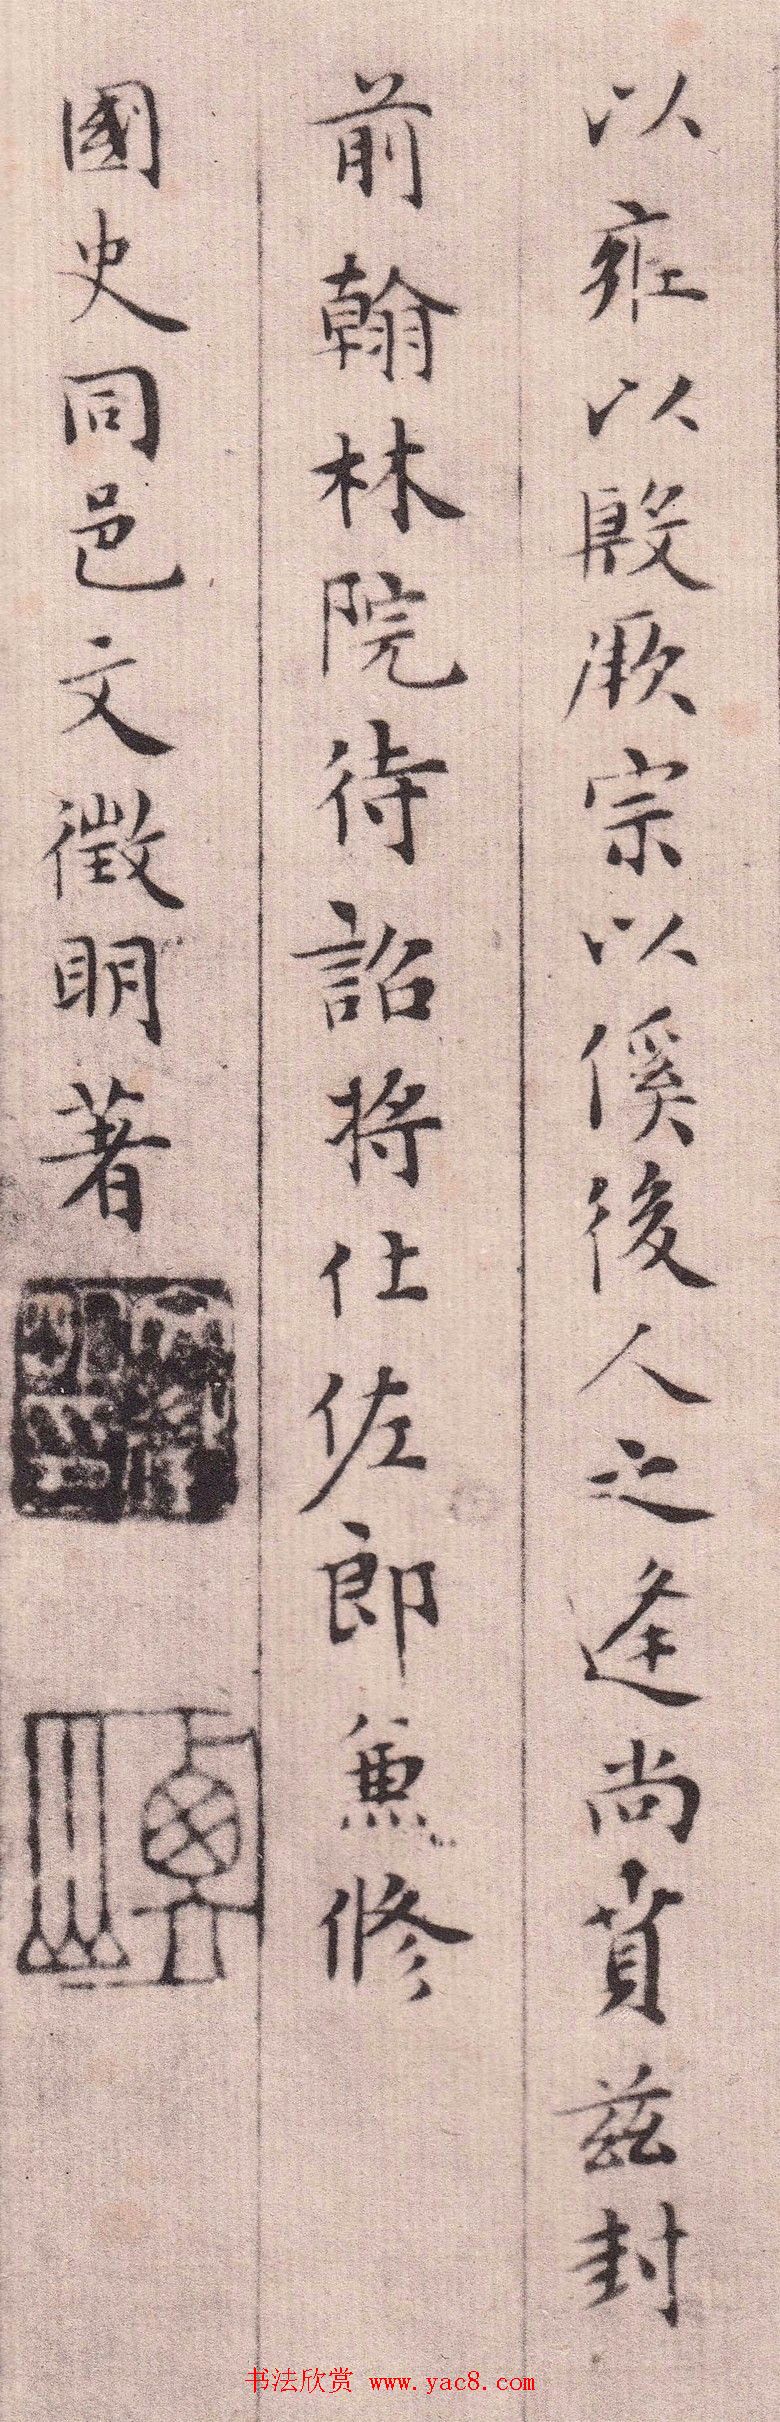 以雍以殷厥宗以俟後人之逢尚賁茲封
前翰林院待詔將仕佐郎兼修
國史同邑文徵明著
书法欣赏 www.yac8.com